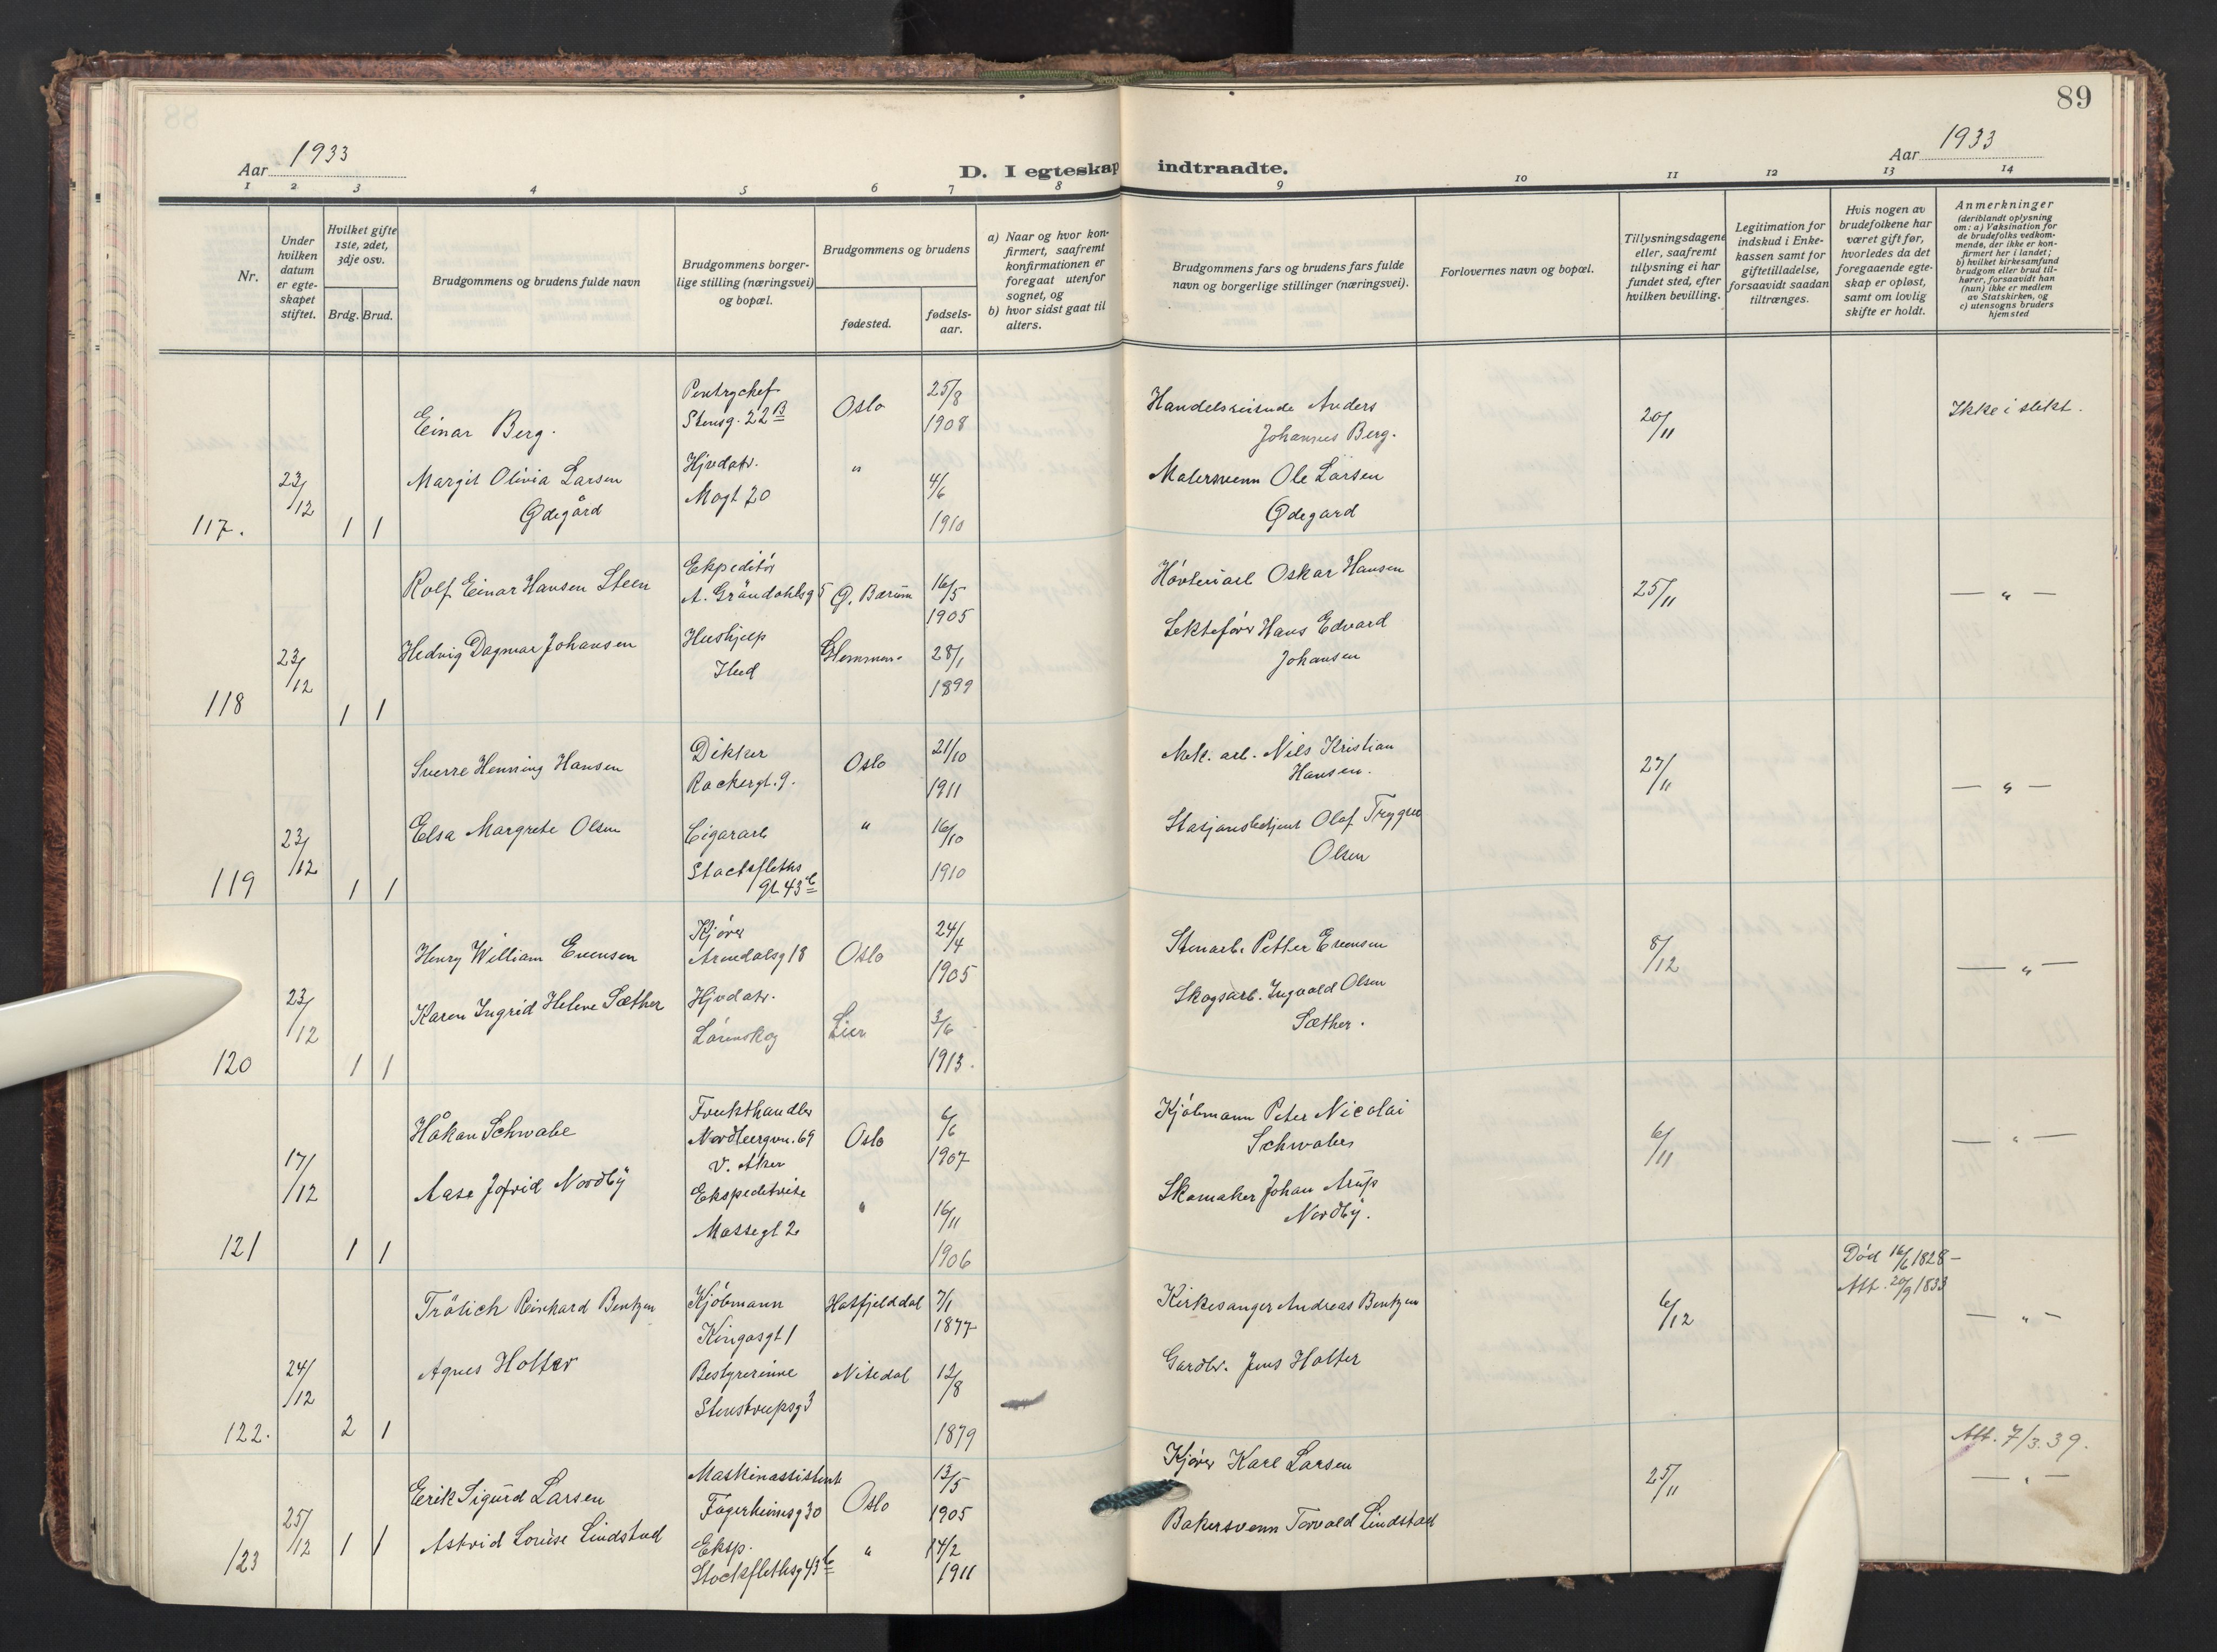 89
Aar 1933
D. I egteskap indtraadte.
Aar 1933
1 2 3 4 5 6 7 8 9 10 11 12 13 14
Nr.
Under hvilken datum er egte-skapet stiftet.
Hvilket gifte 1ste, 2det, 3dje osv.
Brdg. Brud.
Brudgommens og brudens fulde navn
Brudgommens borger-
lige stilling (næringsvei)
og bopæl.
Brudgommens og brudens
fødested.
fødsels-
aar.
a) Naar og hvor kon-
firmert, saafremt
konfirmationen er
foregaat utenfor
sognet, og
b) hvor sidst gaat til
alters.
Brudgommens fars og brudens fars fulde
navn og borgerlige stillinger (næringsvei).
Forlovernes navn og bopæl.
Tillysningsdagene
eller, saafremt
tillysning ei har
fundet sted, efter
hvilken bevilling.
Legitimation for
indskud i Enke-
kassen samt for
giftetilladelse,
forsaavidt saadan
tiltrænges.
Hvis nogen av
brudefolkene har
været gift før,
hvorledes da det
foregaaende egte-
skap er opløst,
samt om lovlig
skifte er holdt.
Anmerkninger
(deriblandt oplysning
om: a) Vaksination for
de brudefolks vedkom-
mende, der ikke er kon-
firmert her i landet;
b) hvilket kirkesamfund
brudgom eller brud til-
hører, forsaavidt han
(hun) ikke er medlem
av Statskirken, og
c) utensogns bruders
hjemsted
117. 23/12 1 1
Einar Berg.
Pentrychef
Stensg. 22 B
Oslo
25/8
1908
Handelsreisende Anders
Johannes Berg.
20/11
Ikke i slekt.
Margit Olivia Larsen
Ødegård
Hjvdatr.
Mogt 20
"
4/6
1910
Malersvenn Ole Larsen
Ødegard
118 23/12 1 1
Rolf Einar Hansen Steen
Ekpeditör
A. Gröndahlsg 5
Ø. Bærum
16/5
1905
Oskar Hansen
25/11
— " —
Hedvig Dagmar Johansen
Hushjelp
Glemmen
28/1
1899
Lektefører Hans Edvard
Johansen
119 23/12 1 1
Sverre Henning Hansen
Dikker
Rackergt. 9.
Oslo
21/10
1911
Mek. arb. Nils Kristian
Hansen.
27/11
— " —
Elsa Margrete Olsen
Cigararb
Stockfleths
gt 43 c
"
16/10
1910
Stasjonsbetjent Olaf Trygve
Olsen
120 23/12 1 1
Henry William Evensen
Kjører
Arendalsg 18
Oslo
24/4
1905
Stenarb. Petter Evensen
8/12
— " —
Karen Ingrid Helene Sæther
Hjvdatr.
Lörenskog
Lier
3/6
1913.
Skogsarb. Ingvald Olsen
Sæther.
121 17/12 1 1
Håkan Schwabe
Frukthandler
Nordbergvn. 69
V. Aker
Oslo
6/6
1907
Kjöbmann Peter Nicolai
Schwabe
6/11
— " —
Aase Jofrid Nordby
Ekspeditrise
Massegt 2
"
16/11
1906
Skomaker Johan Arup
Nordby.
122. 24/12 2 1
Trölich Reinhard Bentzen
Kjöbmann
Kingosgt 1
Hatfjelddal
7/1
1877
Kirkesanger Andreas Bentzen
6/12
Död 16/6 1828 —
Att. 20/9 1833
— " —
Agnes Holter
Bestyrerinne
Stenstrupsg 3
Nitedal
12/8
1879
Gardbr. Jens Holter
123 25/12 1 1
Erik Sigurd Larsen
Maskinassistent
Fagerheimsg 30
Oslo
13/5
1905
Kjører Karl Larsen
25/11
Att. 7/3.39.
— " —
Astrid Louise Lindstad
Eksp.
Stockflethsg 43 c
"
14/2
1911
Bakersvenn Torvald Lindstad